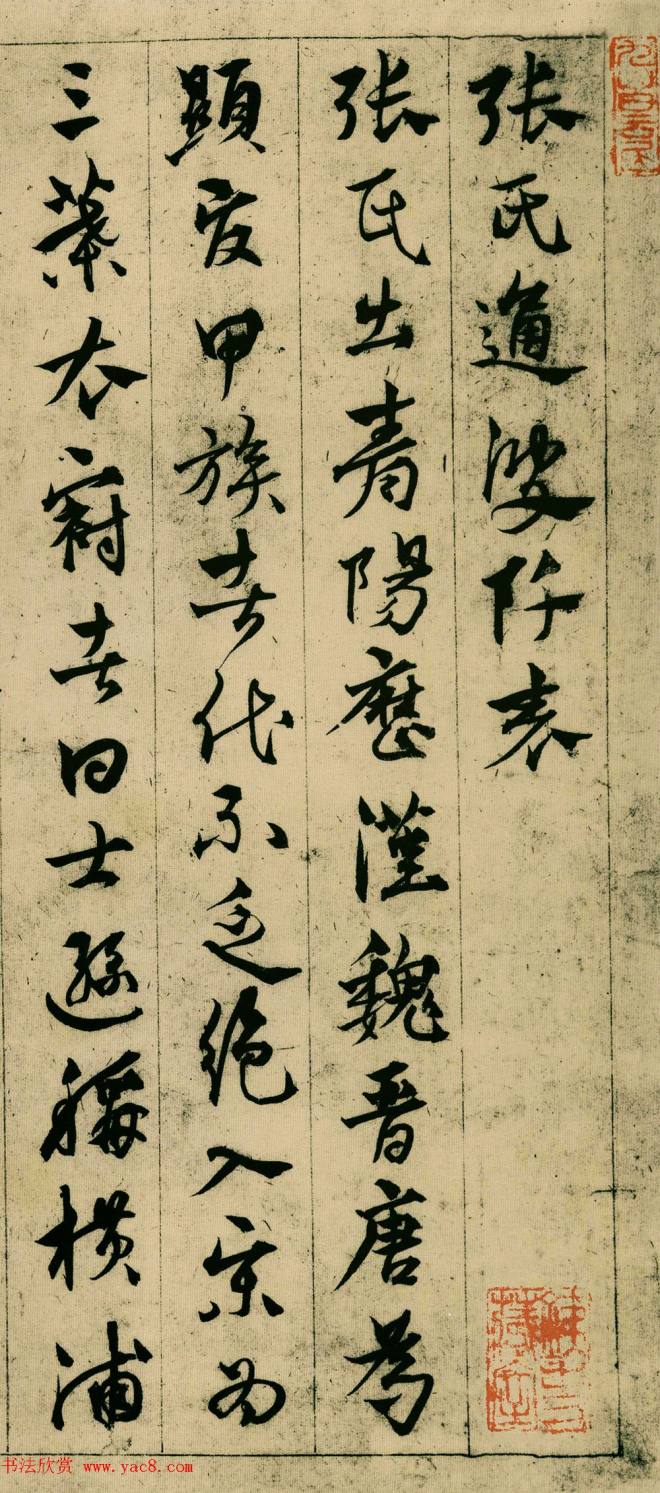 張氏通波阡表
張氏出青陽歷漢魏晉唐為
顯甲族者代不乏絕入宋為
三葉衣冠者曰士遜稱橫浦
书法欣赏 www.yac8.com